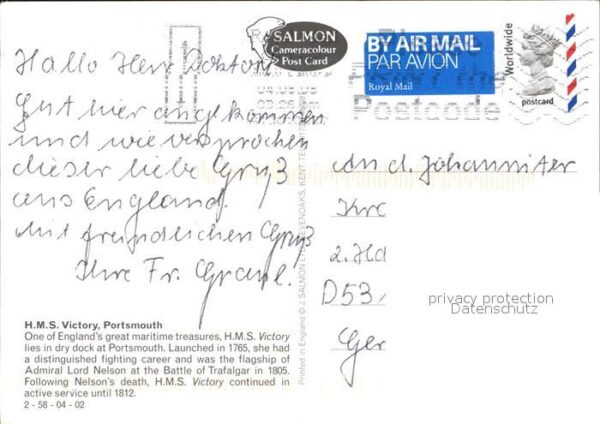 SALMON
Cameracolour
Post Card
BY AIR MAIL
PAR AVION
Royal Mail
Worldwide
postcard
Postcode
Hallo Herr Doktor
Gut hier angekommen
und wie versprochen
dieser liebe Gruß
aus England.
Mit freundlichen Gruß
Ihre Fr.
An d. Johanniter
2. Hd
D53
Ger
privacy protection
Datenschutz
Printed in England © J. SALMON LTD., SEVENOAKS, KENT
H.M.S. Victory, Portsmouth
One of England's great maritime treasures, H.M.S. Victory
lies in dry dock at Portsmouth. Launched in 1765, she had
a distinguished fighting career and was the flagship of
Admiral Lord Nelson at the Battle of Trafalgar in 1805.
Following Nelson's death, H.M.S. Victory continued in
active service until 1812.
2 - 58 - 04 - 02